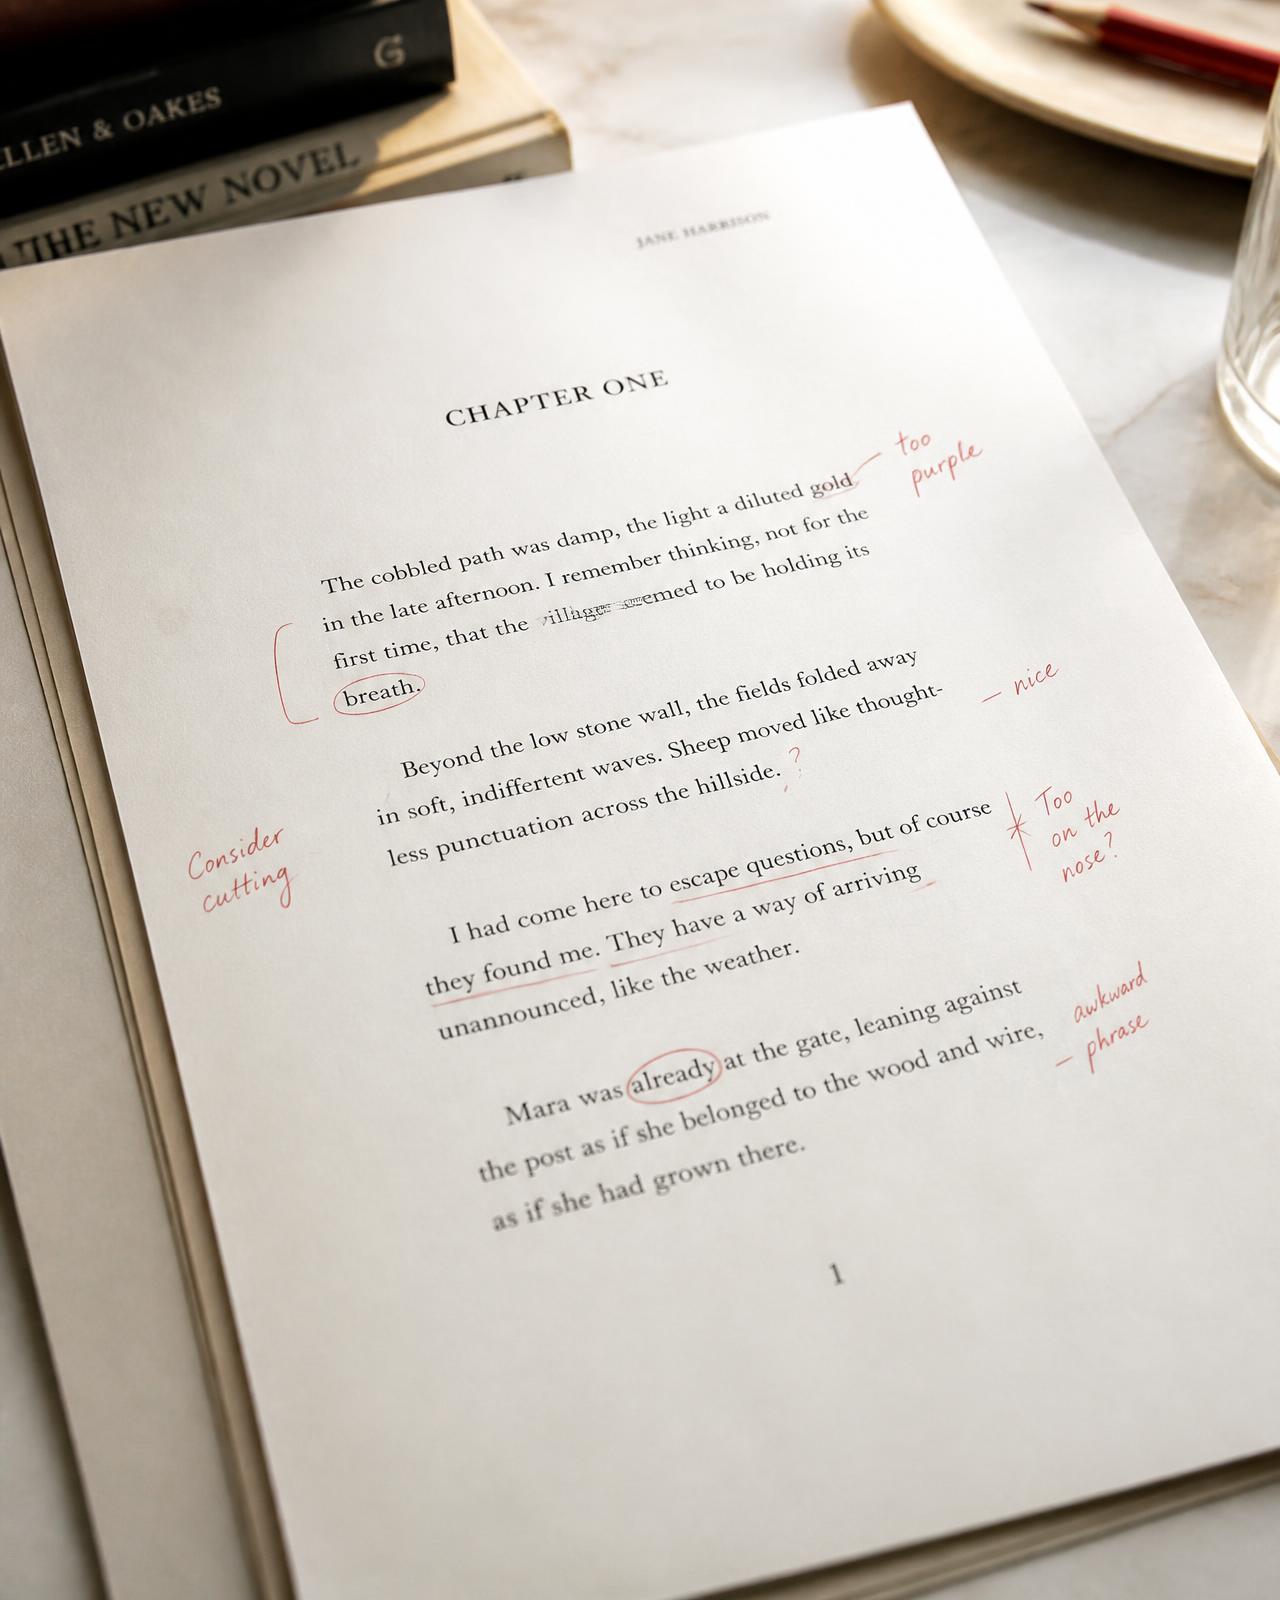 G
& OAKES
THE NEW NOVEL
JANE HARRISON
CHAPTER ONE
too
purple
The cobbled path was damp, the light a diluted gold
in the late afternoon. I remember thinking, not for the
first time, that the to be holding its
breath.
Beyond the low stone wall, the fields folded away
nice
in soft, indiffertent waves. Sheep moved like thought-
less punctuation across the hillside. ?
Consider
cutting
I had come here to escape questions, but of course
they found me. They have a way of arriving
unannounced, like the weather.
Too
on the
nose?
Mara was already at the gate, leaning against
the post as if she belonged to the wood and wire,
as if she had grown there.
awkward
phrase
1